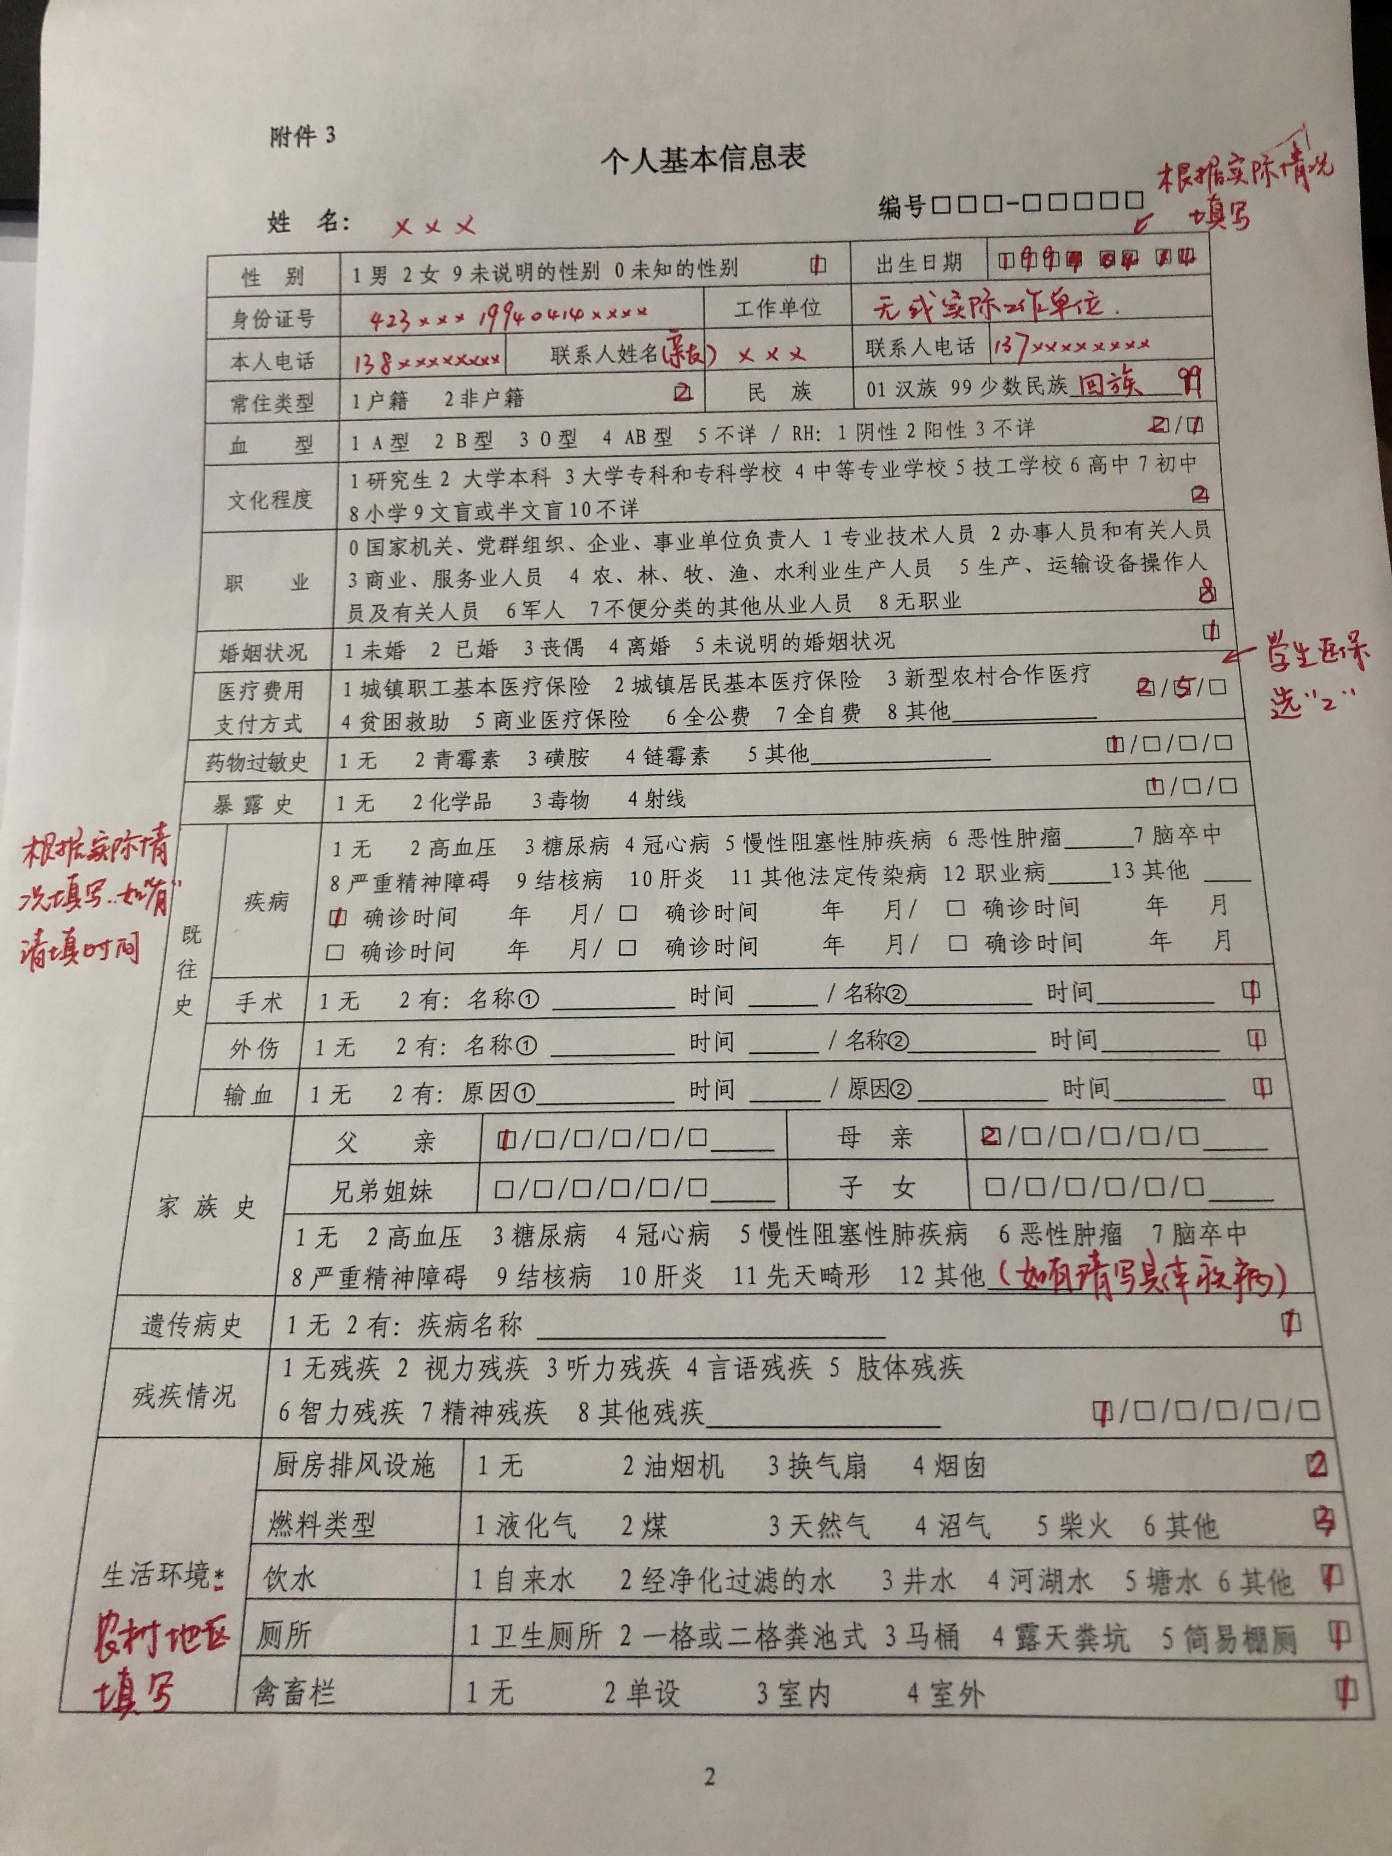 附件 3
个人基本信息表
根据实际情况
填写
姓 名： ×××
编号□□□-□□□□□
性 别 1 男 2 女 9 未说明的性别 0 未知的性别 1 出生日期 1994 04 14
身份证号 423×××19940414×××× 工作单位 无或实际工作单位.
本人电话 138×××××××× 联系人姓名(亲友) ××× 联系人电话 137××××××××
常住类型 1 户籍 2 非户籍 2 民 族 01 汉族 99 少数民族 回族 99
血 型 1 A 型 2 B 型 3 O 型 4 AB 型 5 不详 / RH: 1 阴性 2 阳性 3 不详 2/1
文化程度 1 研究生 2 大学本科 3 大学专科和专科学校 4 中等专业学校 5 技工学校 6 高中 7 初中
8 小学 9 文盲或半文盲 10 不详 2
职 业 0 国家机关、党群组织、企业、事业单位负责人 1 专业技术人员 2 办事人员和有关人员
3 商业、服务业人员 4 农、林、牧、渔、水利业生产人员 5 生产、运输设备操作人
员及有关人员 6 军人 7 不便分类的其他从业人员 8 无职业 8
婚姻状况 1 未婚 2 已婚 3 丧偶 4 离婚 5 未说明的婚姻状况 1
学生医保
选"2"
医疗费用
支付方式
1 城镇职工基本医疗保险 2 城镇居民基本医疗保险 3 新型农村合作医疗
4 贫困救助 5 商业医疗保险 6 全公费 7 全自费 8 其他______ 2/5/□
药物过敏史 1 无 2 青霉素 3 磺胺 4 链霉素 5 其他______ 1/□/□/□
暴 露 史 1 无 2 化学品 3 毒物 4 射线 1/□/□
根据实际情
况填写..如"有"
请填时间
既往史
疾病 1 无 2 高血压 3 糖尿病 4 冠心病 5 慢性阻塞性肺疾病 6 恶性肿瘤____7 脑卒中
8 严重精神障碍 9 结核病 10 肝炎 11 其他法定传染病 12 职业病____13 其他 ___
1 确诊时间 年 月/ □ 确诊时间 年 月/ □ 确诊时间 年 月
□ 确诊时间 年 月/ □ 确诊时间 年 月/ □ 确诊时间 年 月
手术 1 无 2 有：名称① ______ 时间 ____ / 名称②______ 时间______ 1
外伤 1 无 2 有：名称① ______ 时间 ____ / 名称②______ 时间______ 1
输血 1 无 2 有：原因①______ 时间 ____ / 原因② ______ 时间______ 1
家 族 史
父 亲 1/□/□/□/□/□____ 母 亲 2/□/□/□/□/□____
兄弟姐妹 □/□/□/□/□/□____ 子 女 □/□/□/□/□/□____
1 无 2 高血压 3 糖尿病 4 冠心病 5 慢性阻塞性肺疾病 6 恶性肿瘤 7 脑卒中
8 严重精神障碍 9 结核病 10 肝炎 11 先天畸形 12 其他 (如有请写具体疾病)
遗传病史 1 无 2 有：疾病名称 ______ 1
残疾情况 1 无残疾 2 视力残疾 3 听力残疾 4 言语残疾 5 肢体残疾
6 智力残疾 7 精神残疾 8 其他残疾______ 1/□/□/□/□/□
生活环境*
农村地区
填写
厨房排风设施 1 无 2 油烟机 3 换气扇 4 烟囱 2
燃料类型 1 液化气 2 煤 3 天然气 4 沼气 5 柴火 6 其他 3
饮水 1 自来水 2 经净化过滤的水 3 井水 4 河湖水 5 塘水 6 其他 1
厕所 1 卫生厕所 2 一格或二格粪池式 3 马桶 4 露天粪坑 5 简易棚厕 1
禽畜栏 1 无 2 单设 3 室内 4 室外 1
2